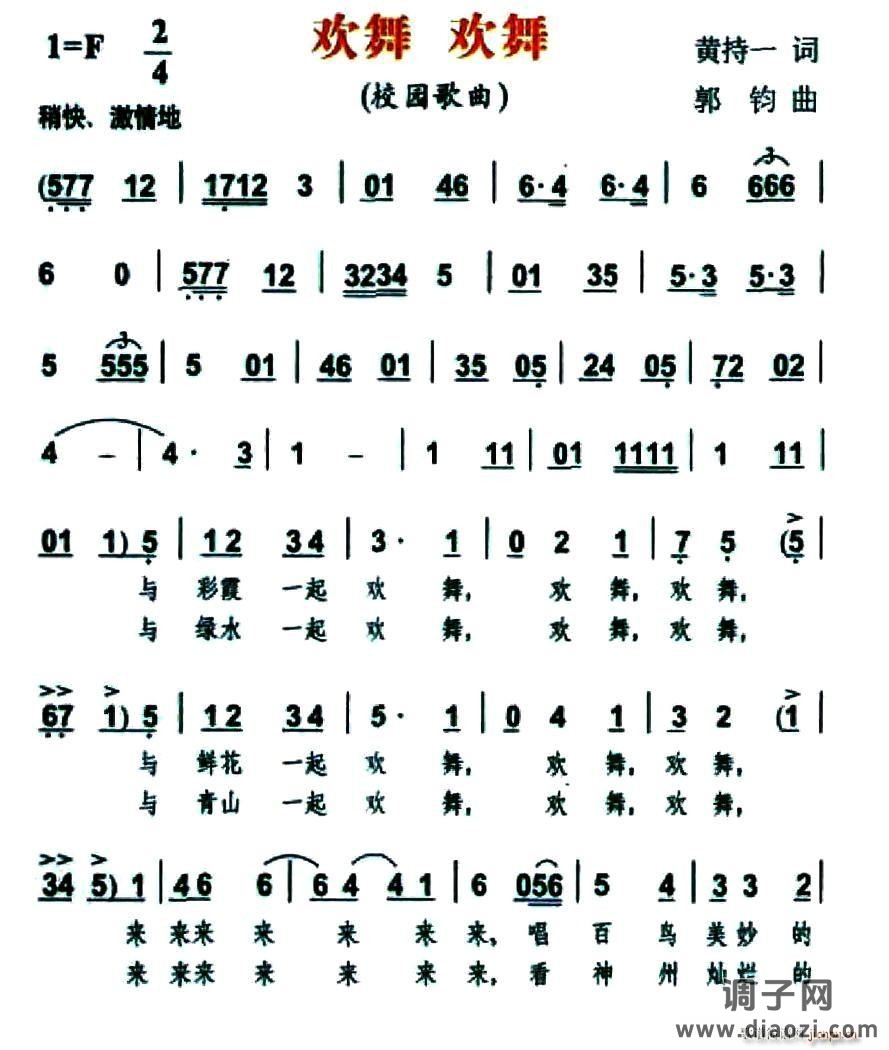 1=F 2/4 欢舞 欢舞 黄持一 词
(校园歌曲) 郭 钧 曲
稍快、激情地
(577 12 | 1712 3 | 01 46 | 6·4 6·4 | 6 666 |
6 0 | 577 12 | 3234 5 | 01 35 | 5·3 5·3 |
5 555 | 5 01 | 46 01 | 35 05 | 24 05 | 72 02 |
4 – | 4· 3 | 1 – | 1 11 | 01 1111 | 1 11 |
01 1) 5 | 12 34 | 3· 1 | 0 2 1 | 7 5 (5 |
与 彩霞 一起 欢 舞, 欢 舞, 欢 舞,
与 绿水 一起 欢 舞, 欢 舞, 欢 舞,
67 1) 5 | 12 34 | 5· 1 | 0 4 1 | 3 2 (1 |
与 鲜花 一起 欢 舞, 欢 舞, 欢 舞,
与 青山 一起 欢 舞, 欢 舞, 欢 舞,
34 5) 1 | 46 6 | 64 41 | 6 056 | 5 4 | 33 2 |
来 来来 来 来 来 来, 唱 百 鸟 美妙 的
来 来来 来 来 来 来, 看 神 州 灿烂 的
调子网
www.diaozi.com